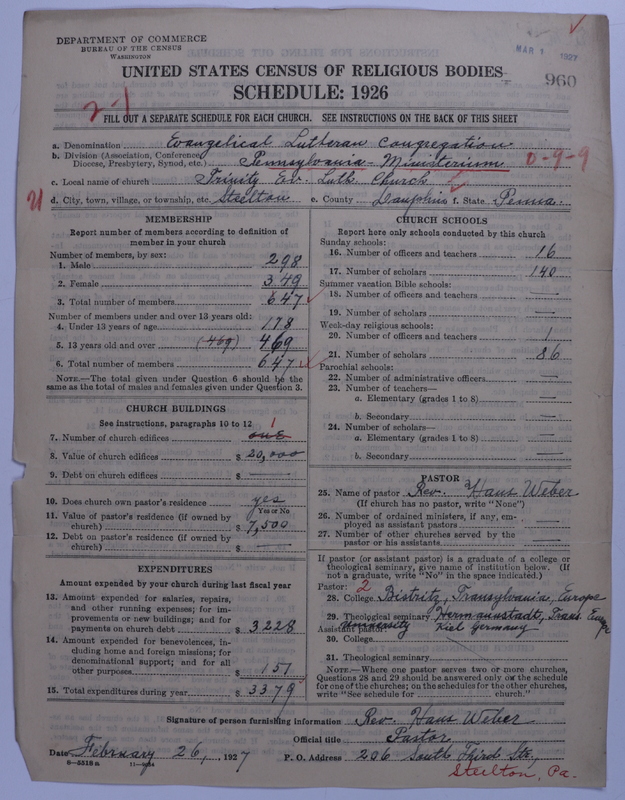 DEPARTMENT OF COMMERCE
BUREAU OF THE CENSUS
WASHINGTON
MAR 1 1927
960
UNITED STATES CENSUS OF RELIGIOUS BODIES
SCHEDULE: 1926
2-1
FILL OUT A SEPARATE SCHEDULE FOR EACH CHURCH. SEE INSTRUCTIONS ON THE BACK OF THIS SHEET
a. Denomination Evangelical Lutheran Congregation
b. Division (Association, Conference, Diocese, Presbytery, Synod, etc.) Pennsylvania-Ministerium 0-9-9
c. Local name of church Trinity Ev. Luth. Church
d. City, town, village, or township, etc. Steelton e. County Dauphin f. State Penna.
MEMBERSHIP
Report number of members according to definition of
member in your church
Number of members, by sex:
1. Male 298
2. Female 349
3. Total number of members 647
Number of members under and over 13 years old:
4. Under 13 years of age 178
5. 13 years old and over (469) 469
6. Total number of members 647
NOTE.—The total given under Question 6 should be the
same as the total of males and females given under Question 3.
CHURCH BUILDINGS
See instructions, paragraphs 10 to 12
7. Number of church edifices one 1
8. Value of church edifices $ 20,000
9. Debt on church edifices $ —
10. Does church own pastor's residence yes
Yes or No
11. Value of pastor's residence (if owned by
church) $ 7,500
12. Debt on pastor's residence (if owned by
church) $ —
EXPENDITURES
Amount expended by your church during last fiscal year
13. Amount expended for salaries, repairs,
and other running expenses; for im-
provements or new buildings; and for
payments on church debt $ 3228
14. Amount expended for benevolences, in-
cluding home and foreign missions; for
denominational support; and for all
other purposes $ 151
15. Total expenditures during year $ 3379
CHURCH SCHOOLS
Report here only schools conducted by this church
Sunday schools:
16. Number of officers and teachers 16
17. Number of scholars 140
Summer vacation Bible schools:
18. Number of officers and teachers —
19. Number of scholars —
Week-day religious schools:
20. Number of officers and teachers 1
21. Number of scholars 86
Parochial schools:
22. Number of administrative officers —
23. Number of teachers—
a. Elementary (grades 1 to 8) —
b. Secondary —
24. Number of scholars—
a. Elementary (grades 1 to 8) —
b. Secondary —
PASTOR
25. Name of pastor Rev. Hans Weber
(If church has no pastor, write "None")
26. Number of ordained ministers, if any, em-
ployed as assistant pastors —
27. Number of other churches served by the
pastor or his assistants —
If pastor (or assistant pastor) is a graduate of a college or
theological seminary, give name of institution below. (If
not a graduate, write "No" in the space indicated.)
Pastor: 2
28. College Bistritz, Transylvania, Europe
29. Theological seminary Hermannstadt, Trans. Europe
Assistant pastor: University Kiel Germany
30. College
31. Theological seminary
NOTE.—Where one pastor serves two or more churches,
Questions 28 and 29 should be answered only on the schedule
for one of the churches; on the schedules for the other churches,
write "See schedule for church."
Signature of person furnishing information Rev. Hans Weber
Official title Pastor
Date February 26, 1927 P. O. Address 206 South Third Str.,
8—5518a
Steelton, Pa.